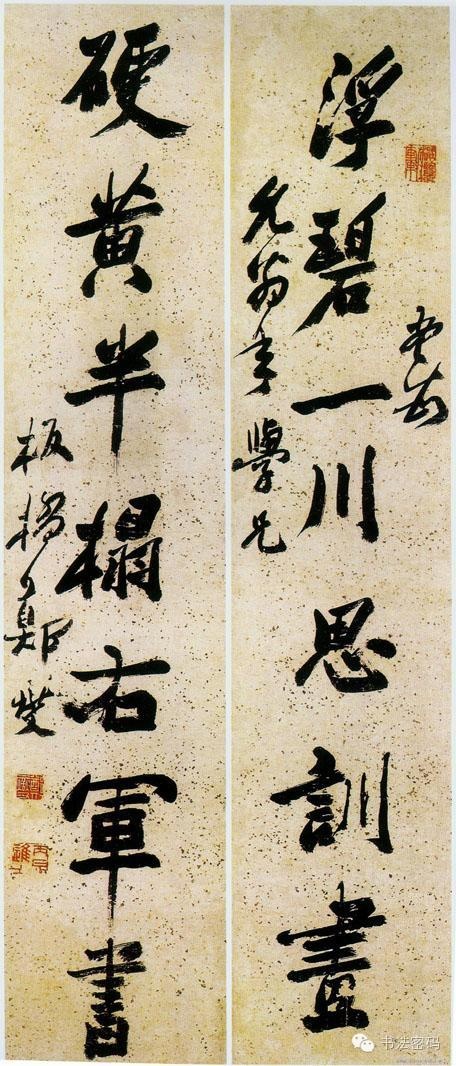 浮碧一川思訓畫
允翁年學兄
硬黄半榻右軍書
板橋鄭燮
书法密码